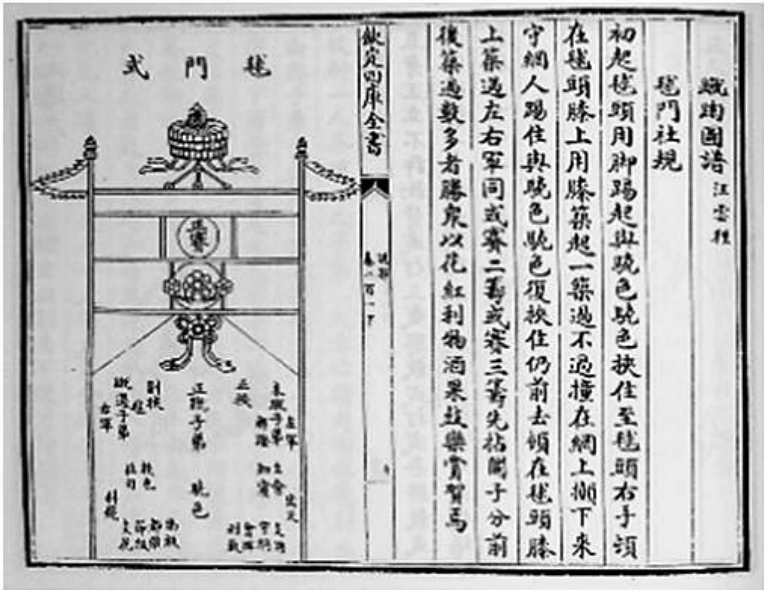 蹴踘圖譜 汪雲程
毬門社規
初起毬頭用脚踢起與驍色驍色挾住至毬頭右手頓
在毬頭膝上用膝築起一築過不過撞在網上攧下來
守網人踢住與驍色驍色復挾住仍前去頓在毬頭膝
上築過左右軍同或賽二籌或賽三籌先拈鬮子分前
後築過數多者勝衆以花紅利物酒果鼓樂賞賀焉
欽定四庫全書
卷一百一下
毬門式
正賽
左軍
知賓
正挾
驍色
副挾
右軍
驍色
都催